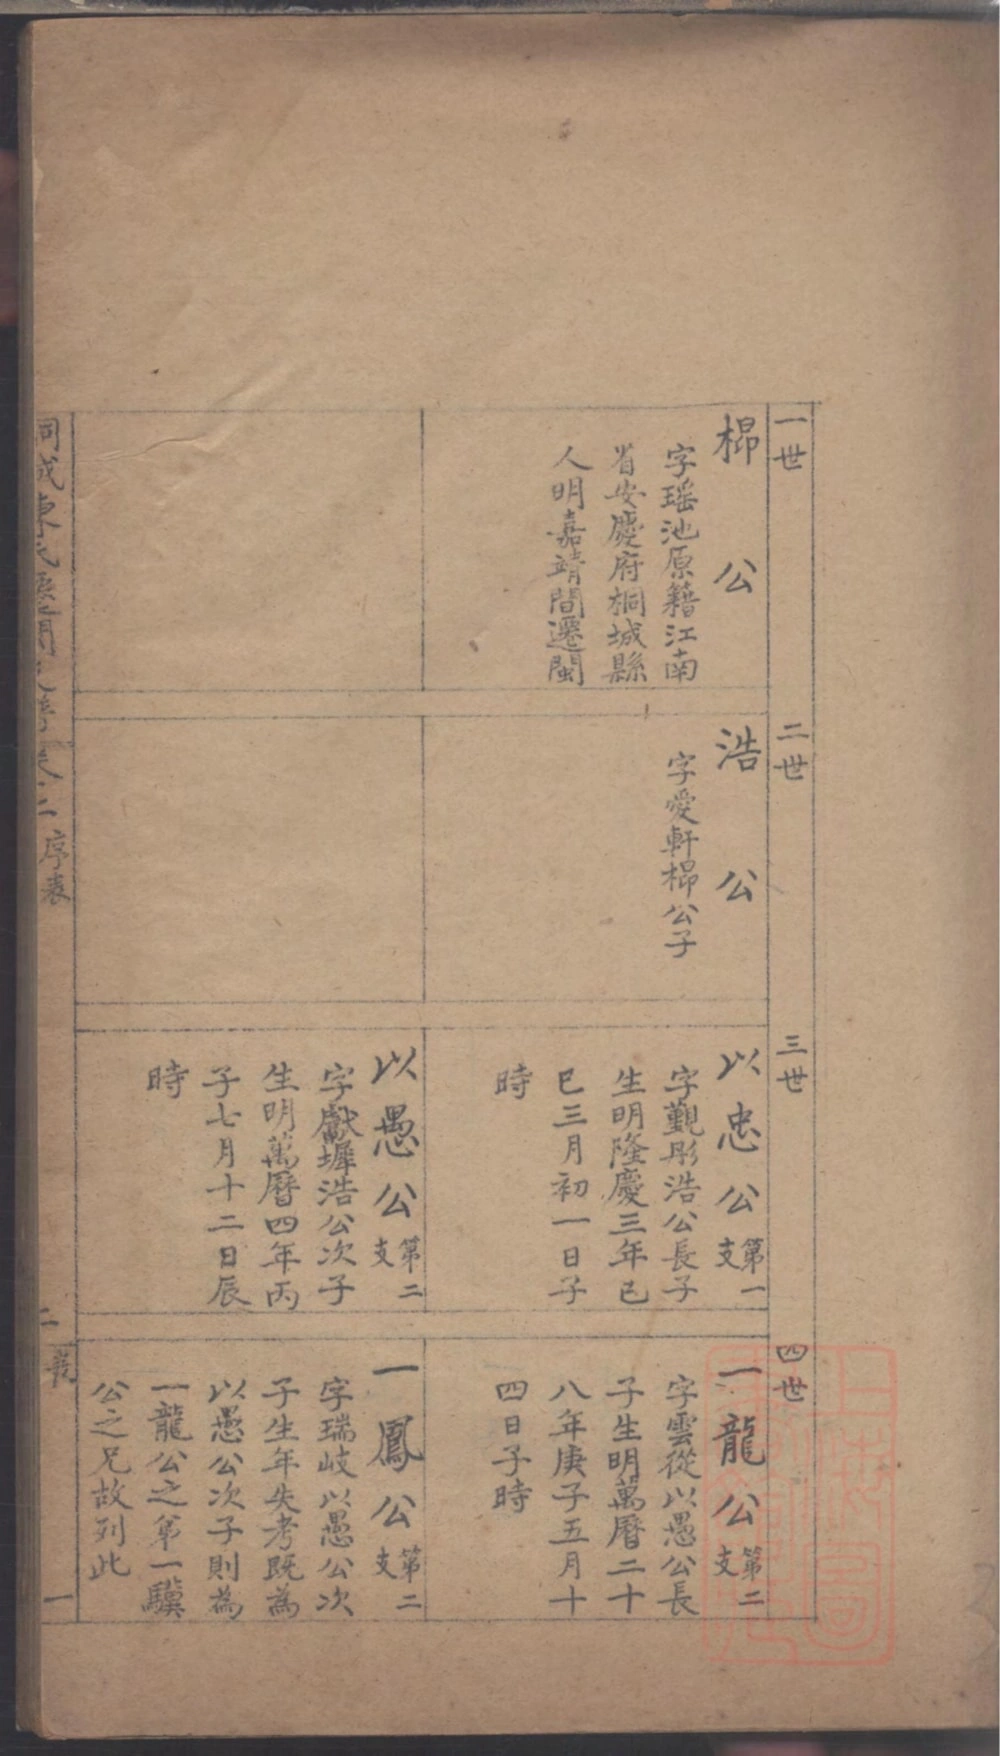 一世
㭿公
字瑶池原籍江南
省安慶府桐城縣
人明嘉靖間遷閩
二世
浩公
字愛軒㭿公子
三世
以忠公第一支
字觀彤浩公長子
生明隆慶三年己
巳三月初一日子
時
以愚公第二支
字獻墀浩公次子
生明萬曆四年丙
子七月十二日辰
時
四世
一龍公第二支
字雲從以愚公長
子生明萬曆二十
八年庚子五月十
四日子時
一鳳公第二支
字瑞岐以愚公次
子生年失考既為
以愚公次子則為
一龍公之第一驥
公之兄故列此
序表
一